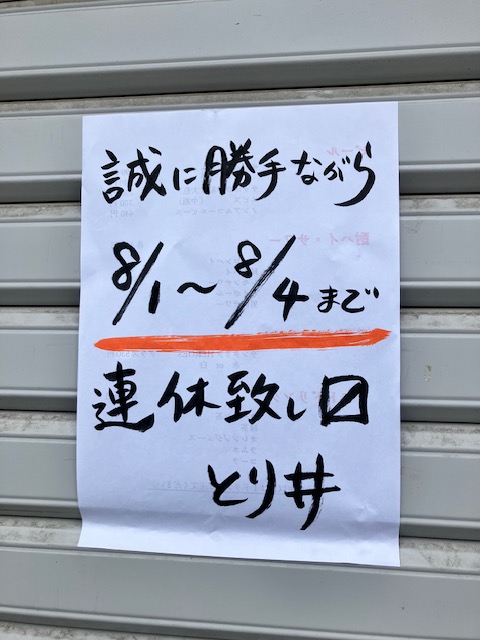 誠に勝手ながら
8/1〜8/4まで
連休致し〼
とり井